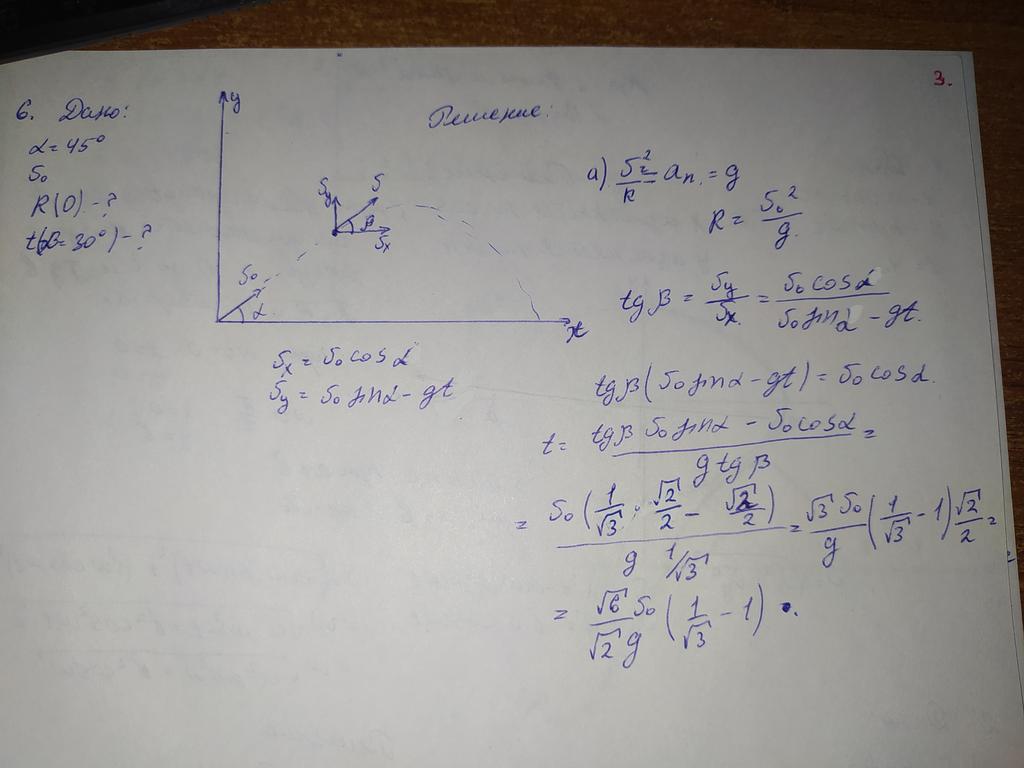 3.
6. Дано:
α = 45°
υ₀
R(0) - ?
t(β = 30°) - ?
y
υy
υ
β
υx
υ₀
α
x
υx = υ₀ cos α
υy = υ₀ sin α - gt
Решение:
а) υ₀²/R = aₙ = g
R = υ₀²/g
tg β = υy/υx = υ₀ cos α/(υ₀ sin α - gt)
tg β (υ₀ sin α - gt) = υ₀ cos α.
t = (tg β υ₀ sin α - υ₀ cos α)/(g tg β) =
= υ₀ (1/√3 · √2/2 - √2/2)/(g 1/√3) = √3 υ₀/g (1/√3 - 1) √2/2 =
= √6 υ₀/(√2 g) (1/√3 - 1).